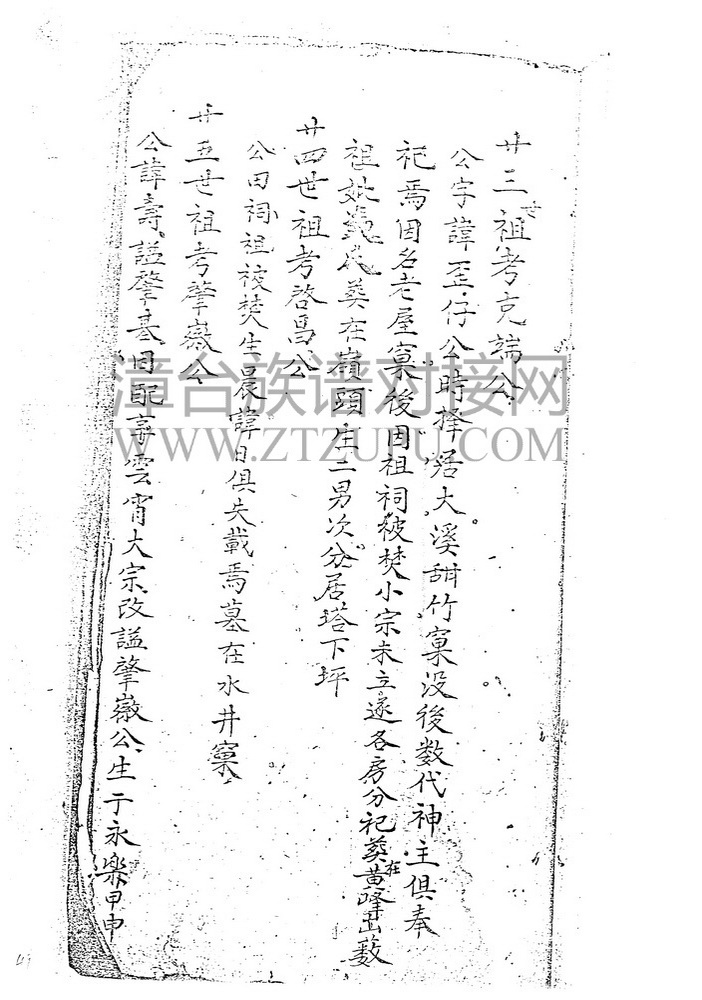 廿三世祖考克端公
公字諱歪仔公時择居大溪甜竹窠没後数代神主俱奉
祀焉因名老屋窠後因祖祠被焚小宗未立遂各房分祀葵在黄峰山薮
祖妣氏葵在嶺頭生二男次分居塔下坪
廿四世祖考啓昌公
公因祠祖被焚生晨諱日俱失載焉墓在水井窠
廿五世祖考肇嶶公
公諱壽謚肇基因配享雲霄大宗改謚肇嶶公生于永樂甲申
漳台族谱对接网
WWW.ZTZUPU.COM